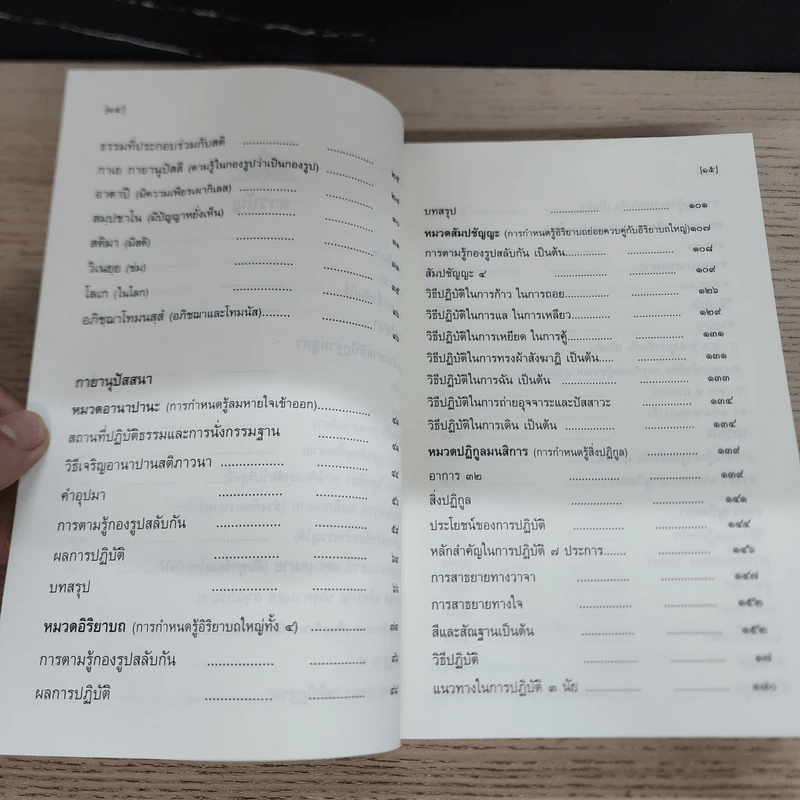 ธรรมที่ประกอบร่วมกับสติ ....................
กาเย กายานุปัสสี (ตามรู้ในกองรูปว่าเป็นกองรูป)
อาตาปี (มีความเพียรเผากิเลส) ....................
สมฺปชาโน (มีปัญญาหยั่งเห็น) ....................
สติมา (มีสติ) ....................
วิเนยฺย (ข่ม) ....................
โลเก (ในโลก) ....................
อภิชฺฌาโทมนสฺสํ (อภิชฌาและโทมนัส)....................
กายานุปัสสนา
หมวดอานาปานะ (การกำหนดรู้ลมหายใจเข้าออก)....................
สถานที่ปฏิบัติธรรมและการนั่งกรรมฐาน
วิธีเจริญอานาปานสติภาวนา ....................
คำอุปมา ....................
การตามรู้กองรูปสลับกัน ....................
ผลการปฏิบัติ ....................
บทสรุป ....................
หมวดอิริยาบถ (การกำหนดรู้อิริยาบถใหญ่ทั้ง ๔) ....................
การตามรู้กองรูปสลับกัน ....................
ผลการปฏิบัติ ....................
[๑๕]
บทสรุป .................... ๑๐๑
หมวดสัมปชัญญะ (การกำหนดรู้อิริยาบถย่อยควบคู่กับอิริยาบถใหญ่)๑๐๗
การตามรู้กองรูปสลับกัน เป็นต้น.................... ๑๐๘
สัมปชัญญะ ๔ .................... ๑๐๙
วิธีปฏิบัติในการก้าว ในการถอย.................... ๑๒๖
วิธีปฏิบัติในการแล ในการเหลียว.................... ๑๒๙
วิธีปฏิบัติในการเหยียด ในการคู้.................... ๑๓๑
วิธีปฏิบัติในการทรงผ้าสังฆาฏิ เป็นต้น.................... ๑๓๑
วิธีปฏิบัติในการฉัน เป็นต้น .................... ๑๓๓
วิธีปฏิบัติในการถ่ายอุจจาระและปัสสาวะ .................... ๑๓๔
วิธีปฏิบัติในการเดิน เป็นต้น .................... ๑๓๔
หมวดปฏิกูลมนสิการ (การกำหนดรู้สิ่งปฏิกูล) .................... ๑๓๙
อาการ ๓๒ .................... ๑๓๙
สิ่งปฏิกูล .................... ๑๔๑
ประโยชน์ของการปฏิบัติ .................... ๑๔๔
หลักสำคัญในการปฏิบัติ ๗ ประการ.................... ๑๔๖
การสาธยายทางวาจา .................... ๑๔๗
การสาธยายทางใจ .................... ๑๕๒
สีและสัณฐานเป็นต้น .................... ๑๕๒
วิธีปฏิบัติ ....................
แนวทางในการปฏิบัติ ๓ นัย ....................